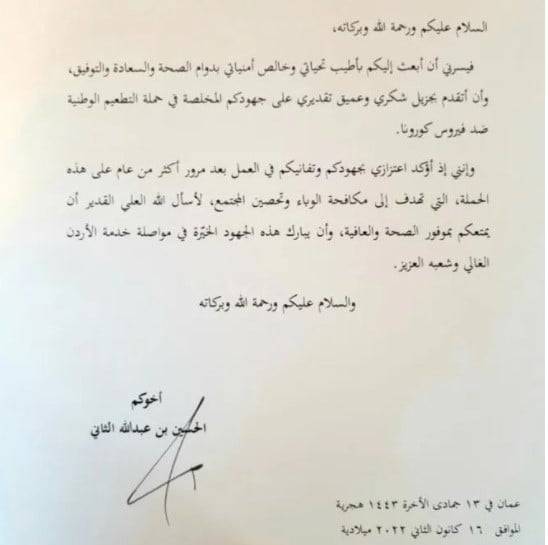 السلام عليكم ورحمة الله وبركاته،
فيسرني أن أبعث إليكم بأطيب تحياتي وخالص أمنياتي بدوام الصحة والسعادة والتوفيق،
وأن أتقدم بجزيل شكري وعميق تقديري على جهودكم المخلصة في حملة التطعيم الوطنية
ضد فيروس كورونا.
وإنني إذ أؤكد اعتزازي بجهودكم وتفانيكم في العمل بعد مرور أكثر من عام على هذه
الحملة، التي تهدف إلى مكافحة الوباء وتحصين المجتمع، لأسأل الله العلي القدير أن
يمتعكم بموفور الصحة والعافية، وأن يبارك هذه الجهود الخيّرة في مواصلة خدمة الأردن
الغالي وشعبه العزيز.
والسلام عليكم ورحمة الله وبركاته
أخوكم
الحسين بن عبدالله الثاني
عمان في ١٣ جمادى الآخرة ١٤٤٣ هجرية
الموافق ١٦ كانون الثاني ٢٠٢٢ ميلادية